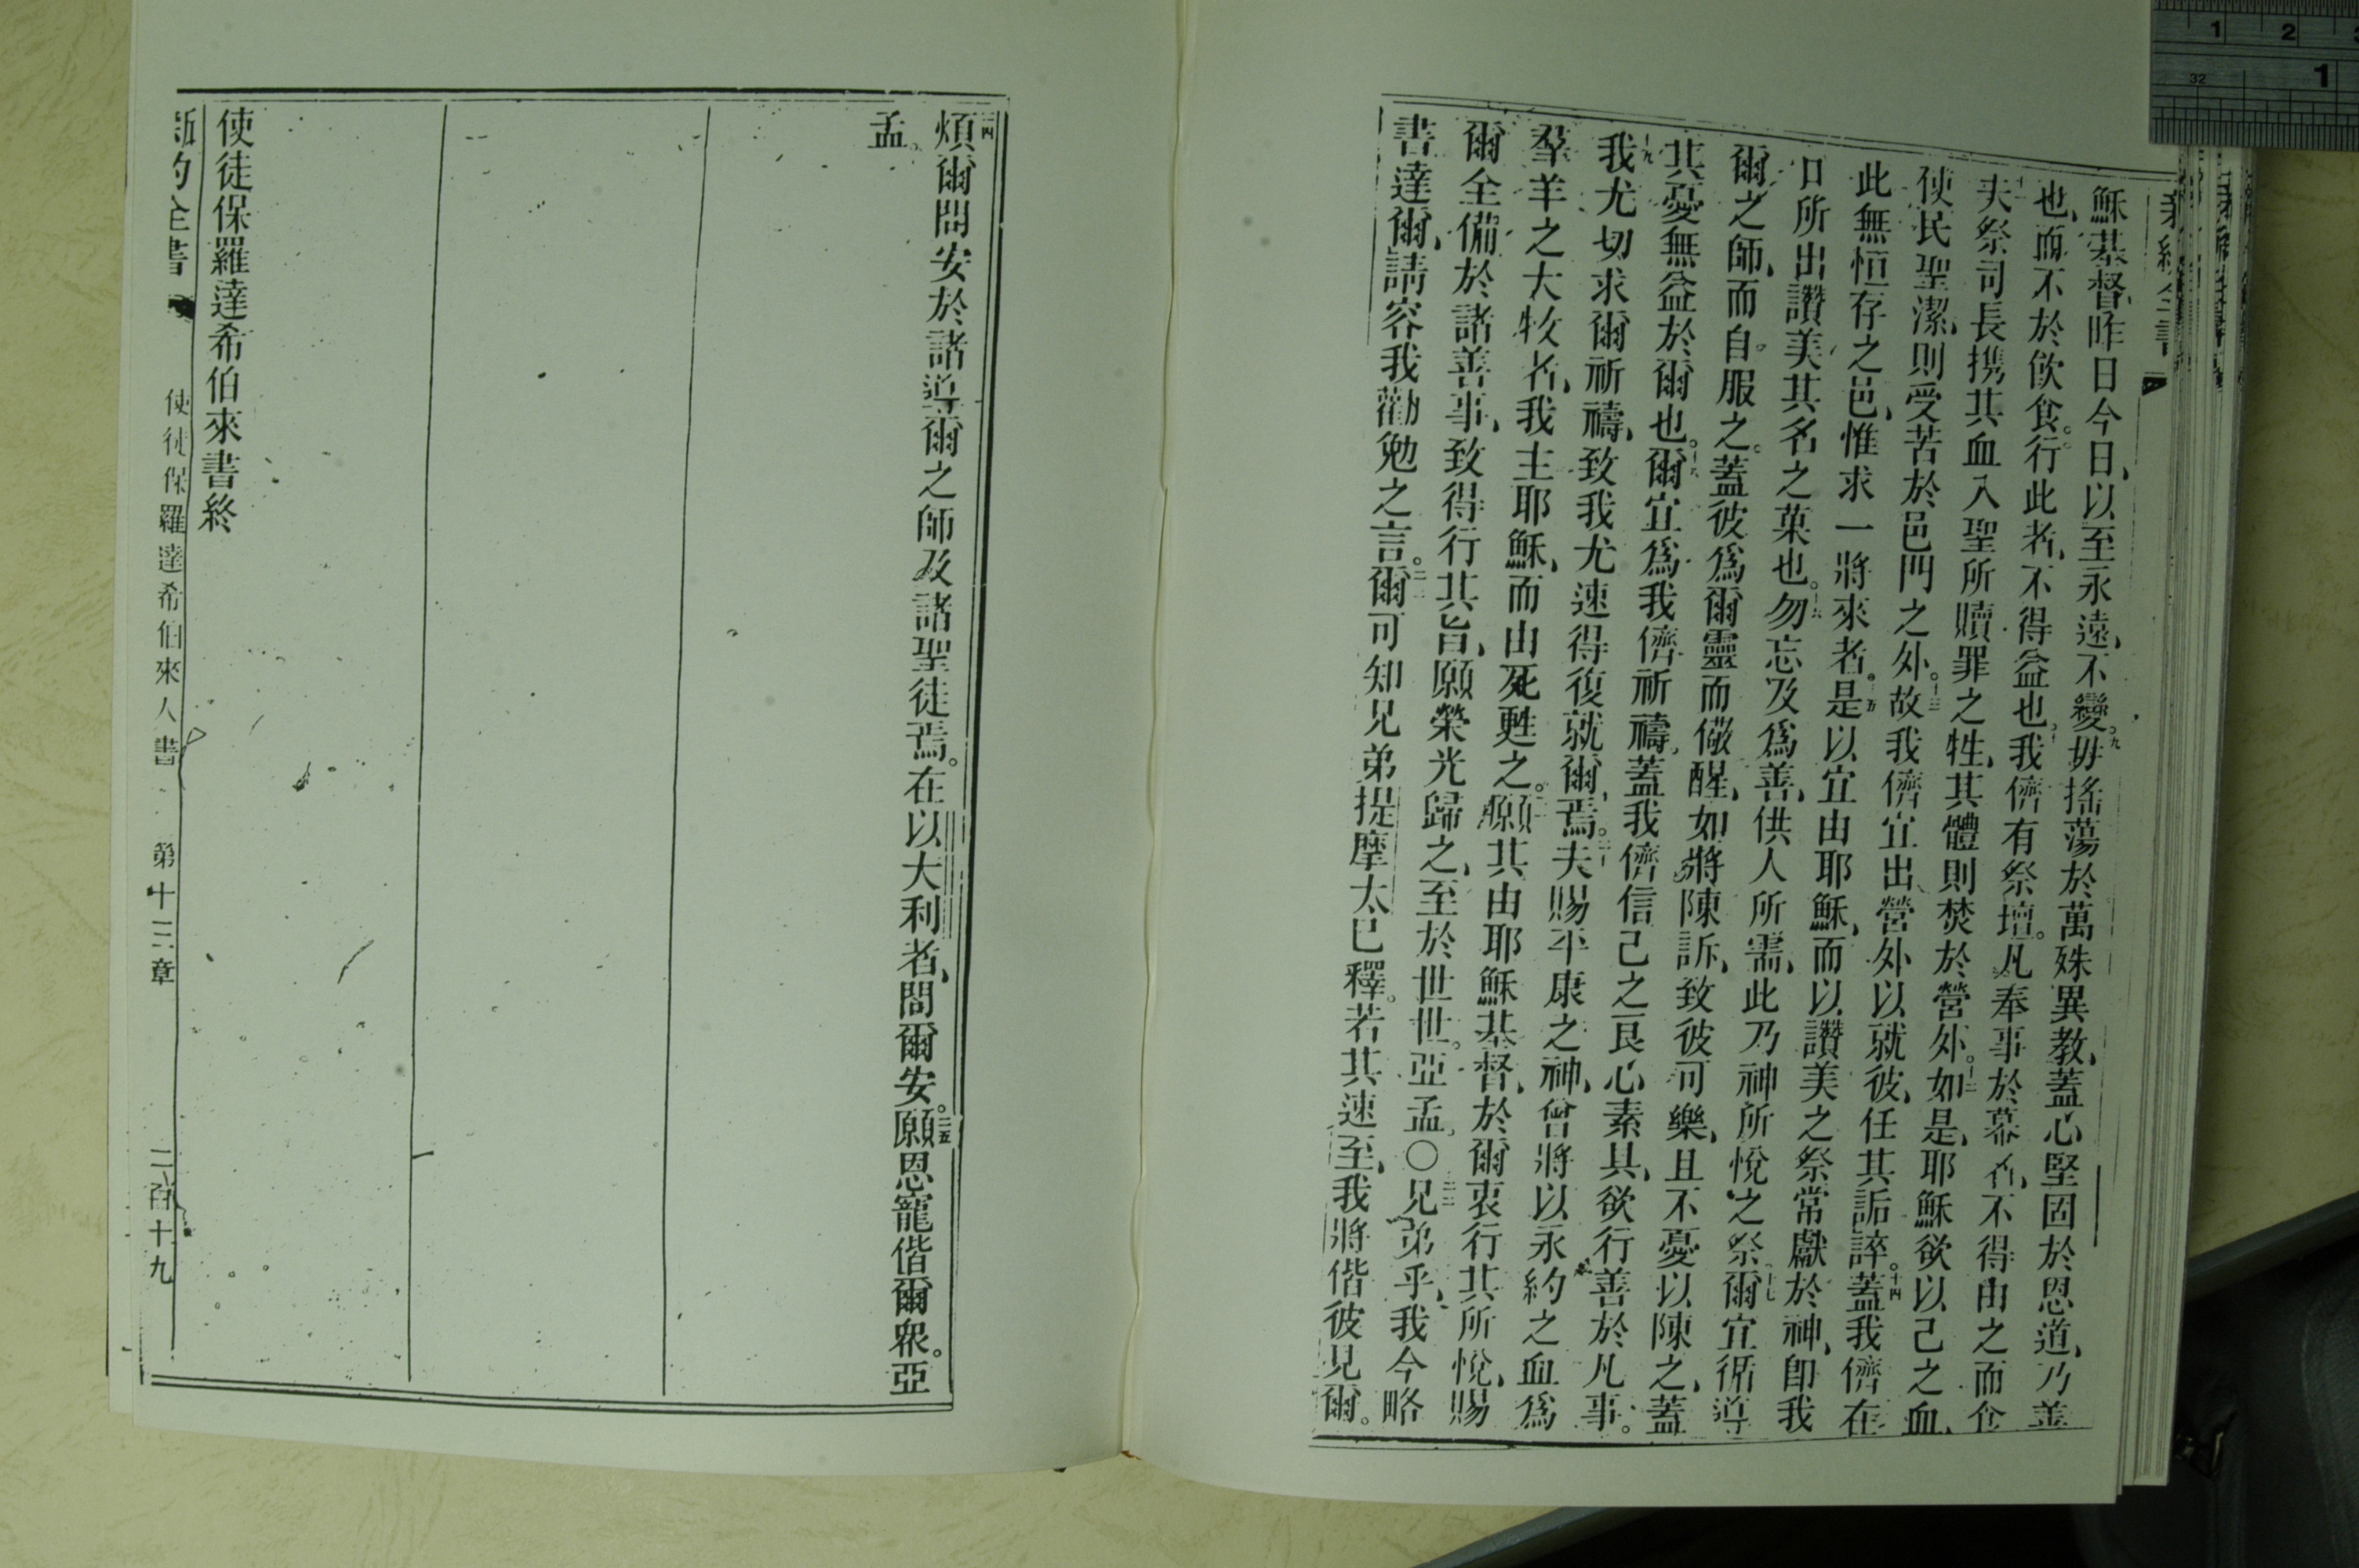 新約全書
穌基督、昨日今日、以至永遠、不變。九毋搖蕩於萬殊異教、蓋心堅固於恩道、乃善
也、而不於飲食。行此者、不得益也。十我儕有祭壇。凡奉事於幕者、不得由之而食
十一夫祭司長携其血入聖所贖罪之牲、其體則焚於營外。十二如是、耶穌欲以己之血、
使民聖潔、則受苦於邑門之外。十三故我儕宜出營外以就彼、任其詬誶。十四蓋我儕在
此無恒存之邑、惟求一將來者。十五是以宜由耶穌、而以讚美之祭常獻於神、卽我
口所出讚美其名之菓也。十六勿忘及爲善、供人所需、此乃神所悅之祭。十七爾宜循導
爾之師、而自服之。蓋彼爲爾靈而儆醒、如將陳訴、致彼可樂、且不憂以陳之、蓋
其憂無益於爾也。十八爾宜爲我儕祈禱、蓋我儕信己之良心素具、欲行善於凡事。
十九我尤切求爾祈禱、致我尤速得復就爾焉。二十夫賜平康之神、曾將以永約之血爲
羣羊之大牧者、我主耶穌、而由死甦之。二一願其由耶穌基督、於爾衷行其所悅、賜
爾全備於諸善事、致得行其旨、願榮光歸之、至於世世。亞孟。〇二二兄弟乎、我今略
書達爾、請容我勸勉之言。二三爾可知兄弟提摩太已釋。若其速至、我將偕彼見爾。
二四煩爾問安於諸導爾之師及諸聖徒焉。在以大利者、問爾安。二五願恩寵偕爾衆。亞
孟。
使徒保羅達希伯來書終
新約全書 使徒保羅達希伯來人書 第十三章 二百十九
1 2
32
1